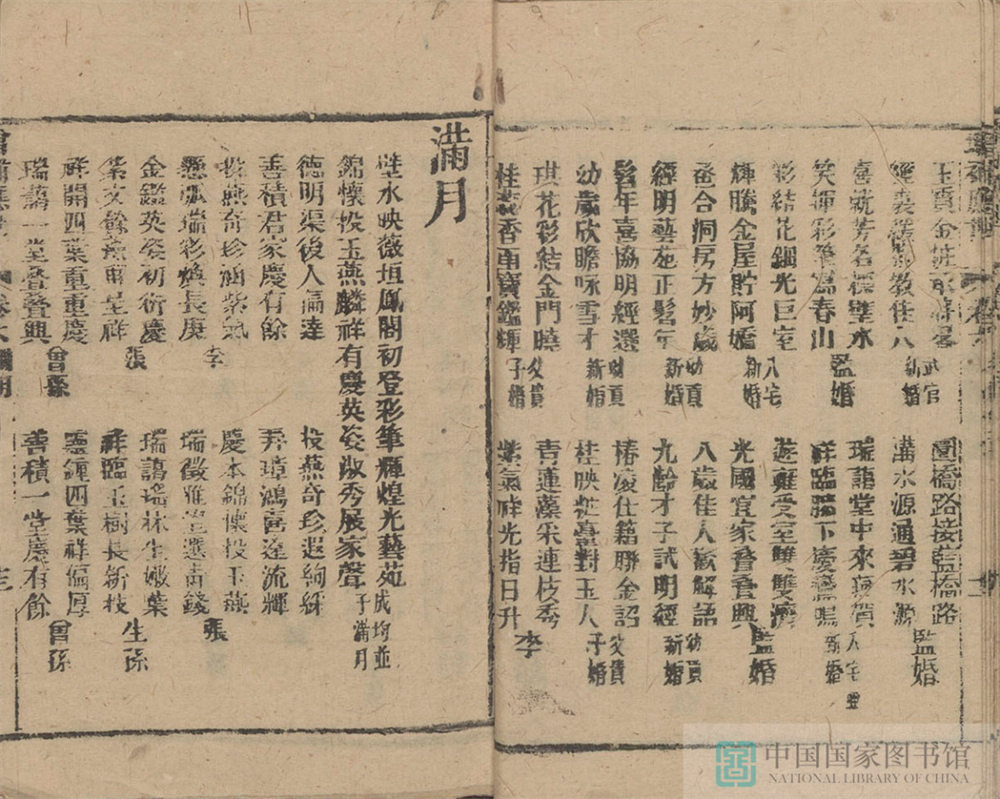 圜橋路接藍橋路 監婚
溝水源通碧水源
喜 芳名標璧水 監婚
瑞靄堂中來 賀 入宅 新婚
笑揮彩筆寫春山
祥臨膝下慶鸞鳴
彩結花鈿光巨室 入宅新婚
遊雍受室雙雙濟 監婚
輝騰金屋貯阿嬌
光國宜家疊疊興
巹合洞房方妙歲 幼貢新婚
八歲佳人徵解語
經明藝苑正髫年
九齡才子試明經 幼貢新婚
髫年喜協明經選 幼貢新婚
椿凌仕籍聯金詔 父貢子婚
幼歲欣瞻咏雪才
桂映粧臺對玉人
琪花彩結金門曉 父貴子婚
青蓮藻采連枝秀 李
桂蕊香 寶鑑輝
紫氣祥光指日升
滿月
璧水映薇垣鳳閣初登彩筆輝煌光藝苑
錦懷投玉燕麟祥有慶英姿 秀展家聲 成均並子滿月
德明渠後人偏達
投燕奇珍遐絢綵
善積君家慶有餘 李
弄璋鴻喜達流輝
投燕奇珍涵紫氣
慶本錦懷投玉燕
懸弧瑞彩煥長庚
瑞徵雅 選青錢 張
金鑑英姿初衍慶 張
瑞靄瑤林生嫩葉
紫文餘 再呈祥
祥臨玉樹長新枝 生孫
祥開四葉重重慶 曾孫
靈鍾四葉祥偏厚
瑞靄一堂疊疊興
善積一堂慶有餘 曾孫
中国国家图书馆
NATIONAL LIBRARY OF CHINA